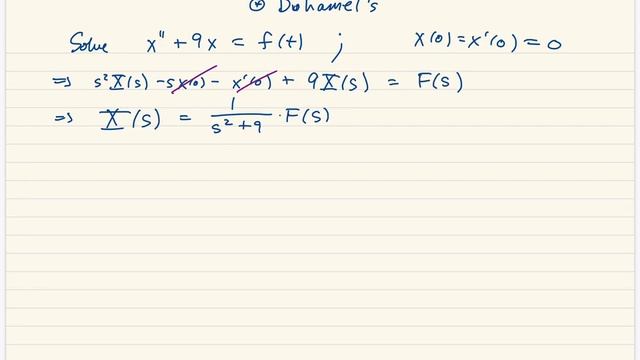 ⊛ Duhamel's
Solve x'' + 9x = f(t) ; x(0) = x'(0) = 0
⇒ s²X(s) - sx(0) - x'(0) + 9X(s) = F(s)
⇒ X(s) = 1/(s²+9) · F(s)